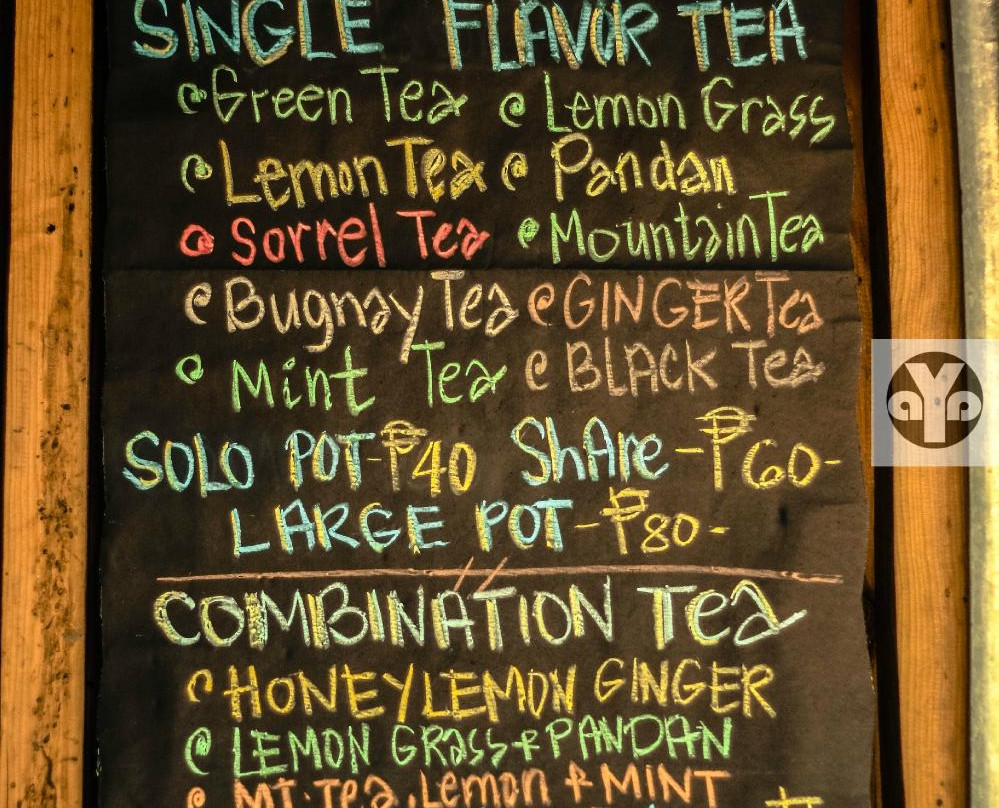 SINGLE FLAVOR TEA
Green Tea Lemon Grass
Lemon Tea Pandan
Sorrel Tea Mountain Tea
Bugnay Tea GINGER Tea
Mint Tea BLACK Tea
SOLO POT-₱40 ShAre -₱60-
LARGE POT -₱80-
COMBINATION Tea
HONEY LEMON GINGER
LEMON GRass + PANDAN
MT. Tea, Lemon + MINT
aYa